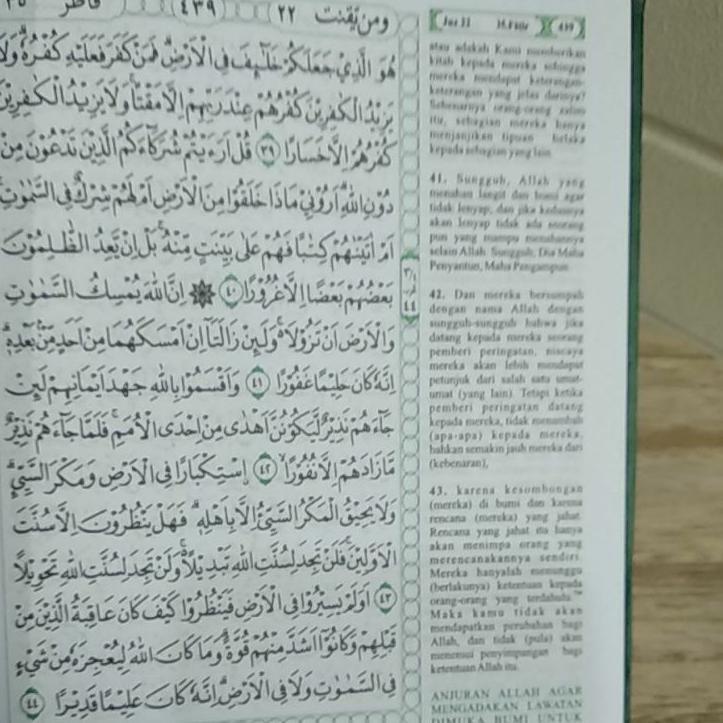 ومن يقنت ٢٢
٤٣٩
فاطر ٣٥
هُوَ الَّذِيْ جَعَلَكُمْ خَلٰۤىِٕفَ فِى الْاَرْضِۗ فَمَنْ كَفَرَ فَعَلَيْهِ كُفْرُهٗۗ وَلَا
يَزِيْدُ الْكٰفِرِيْنَ كُفْرُهُمْ عِنْدَ رَبِّهِمْ اِلَّا مَقْتًاۚ وَلَا يَزِيْدُ الْكٰفِرِيْنَ
كُفْرُهُمْ اِلَّا خَسَارًا ٣٩ قُلْ اَرَءَيْتُمْ شُرَكَاۤءَكُمُ الَّذِيْنَ تَدْعُوْنَ مِنْ
دُوْنِ اللّٰهِۗ اَرُوْنِيْ مَاذَا خَلَقُوْا مِنَ الْاَرْضِ اَمْ لَهُمْ شِرْكٌ فِى السَّمٰوٰتِۚ
اَمْ اٰتَيْنٰهُمْ كِتٰبًا فَهُمْ عَلٰى بَيِّنَتٍ مِّنْهُۚ بَلْ اِنْ يَّعِدُ الظّٰلِمُوْنَ
بَعْضُهُمْ بَعْضًا اِلَّا غُرُوْرًا ٤٠ ۞ اِنَّ اللّٰهَ يُمْسِكُ السَّمٰوٰتِ
وَالْاَرْضَ اَنْ تَزُوْلَا ەۚ وَلَىِٕنْ زَالَتَآ اِنْ اَمْسَكَهُمَا مِنْ اَحَدٍ مِّنْۢ بَعْدِهٖۗ
اِنَّهٗ كَانَ حَلِيْمًا غَفُوْرًا ٤١ وَاَقْسَمُوْا بِاللّٰهِ جَهْدَ اَيْمَانِهِمْ لَىِٕنْ
جَاۤءَهُمْ نَذِيْرٌ لَّيَكُوْنُنَّ اَهْدٰى مِنْ اِحْدَى الْاُمَمِۚ فَلَمَّا جَاۤءَهُمْ نَذِيْرٌ
مَّا زَادَهُمْ اِلَّا نُفُوْرًاۙ ٤٢ اِسْتِكْبَارًا فِى الْاَرْضِ وَمَكْرَ السَّيِّئِۗ
وَلَا يَحِيْقُ الْمَكْرُ السَّيِّئُ اِلَّا بِاَهْلِهٖۗ فَهَلْ يَنْظُرُوْنَ اِلَّا سُنَّتَ
الْاَوَّلِيْنَۚ فَلَنْ تَجِدَ لِسُنَّتِ اللّٰهِ تَبْدِيْلًا ەۚ وَلَنْ تَجِدَ لِسُنَّتِ اللّٰهِ تَحْوِيْلًا
٤٣ اَوَلَمْ يَسِيْرُوْا فِى الْاَرْضِ فَيَنْظُرُوْا كَيْفَ كَانَ عَاقِبَةُ الَّذِيْنَ مِنْ
قَبْلِهِمْ وَكَانُوْٓا اَشَدَّ مِنْهُمْ قُوَّةًۗ وَمَا كَانَ اللّٰهُ لِيُعْجِزَهٗ مِنْ شَيْءٍ
فِى السَّمٰوٰتِ وَلَا فِى الْاَرْضِۗ اِنَّهٗ كَانَ عَلِيْمًا قَدِيْرًا ٤٤
Juz 22 35.Fatir 439
atau adakah Kami memberikan
kitab kepada mereka sehingga
mereka mendapat keterangan-
keterangan yang jelas darinya?
Sebenarnya orang-orang zalim
itu, sebagian mereka hanya
menjanjikan tipuan belaka
kepada sebagian yang lain.
41. Sungguh, Allah yang
menahan langit dan bumi agar
tidak lenyap; dan jika keduanya
akan lenyap tidak ada seorang
pun yang mampu menahannya
selain Allah. Sungguh, Dia Maha
Penyantun, Maha Pengampun.
42. Dan mereka bersumpah
dengan nama Allah dengan
sungguh-sungguh bahwa jika
datang kepada mereka seorang
pemberi peringatan, niscaya
mereka akan lebih mendapat
petunjuk dari salah satu umat-
umat (yang lain). Tetapi ketika
pemberi peringatan datang
kepada mereka, tidak menambah
(apa-apa) kepada mereka,
bahkan semakin jauh mereka dari
(kebenaran),
43. karena kesombongan
(mereka) di bumi dan karena
rencana (mereka) yang jahat.
Rencana yang jahat itu hanya
akan menimpa orang yang
merencanakannya sendiri.
Mereka hanyalah menunggu
(berlakunya) ketentuan kepada
orang-orang yang terdahulu.
Maka kamu tidak akan
mendapatkan perubahan bagi
Allah, dan tidak (pula) akan
menemui penyimpangan bagi
ketentuan Allah itu.
ANJURAN ALLAH AGAR
MENGADAKAN LAWATAN
DIMUKA BUMI UNTUK